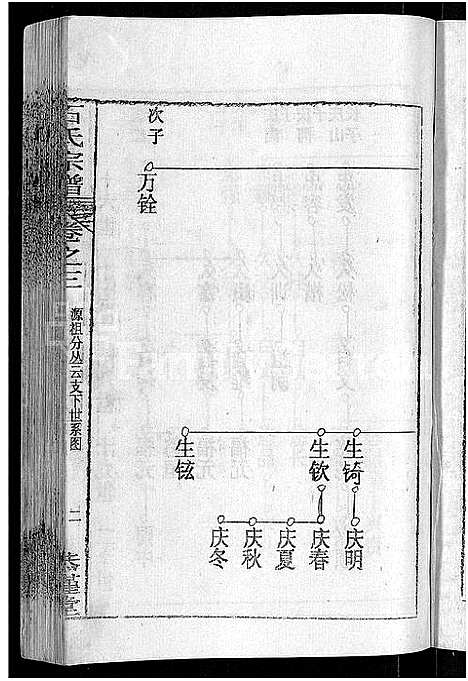 生锜
庆明
生钦
庆春
庆夏
庆秋
庆冬
生铉
次子
万铨
石氏宗谱
卷之三
源祖分丛云支下世系图
二
恭谨堂